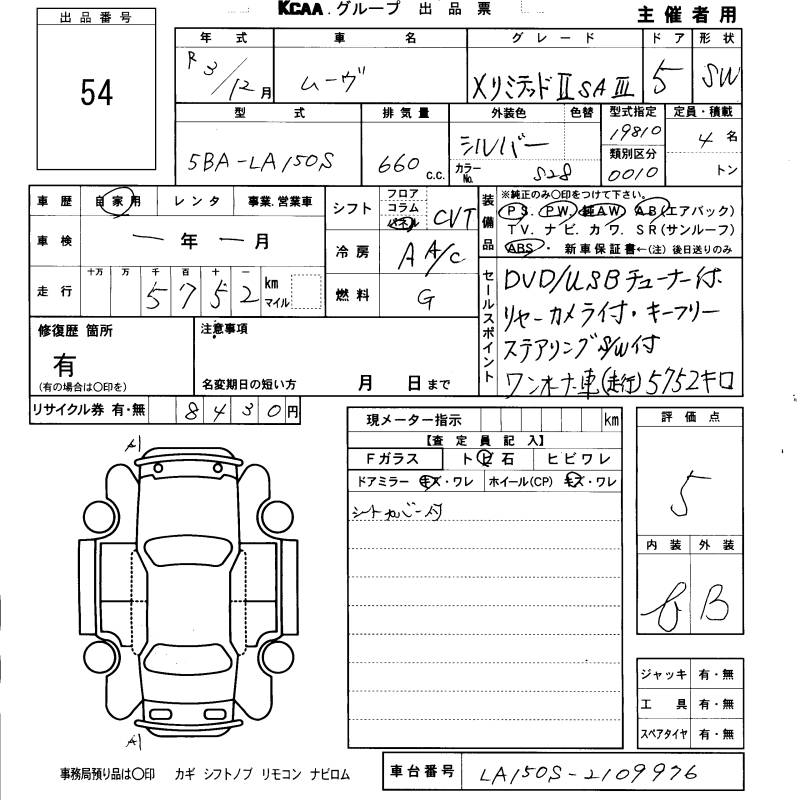 KCAA.グループ 出品票
主催者用
出品番号
54
年式 車名 グレード ドア 形状
R3/12月 ムーヴ XリミテッドⅡSAⅢ 5 SW
型式 排気量 外装色 色替 型式指定 定員・積載
5BA-LA150S 660 c.c. シルバー 19810 4名
カラーNo. S28 類別区分 0010 トン
車歴 自家用 レンタ 事業.営業車
車検 ー年ー月
走行 十万 万 千 百 十 一 km マイル
5752
シフト フロア コラム パネル CVT
冷房 A A/C
燃料 G
装備品 ※純正のみ○印をつけて下さい。
PS. PW. 純AW AB(エアバック)
TV. ナビ. カワ. SR(サンルーフ)
ABS・ 新車保証書←(注)後日送りのみ
セールスポイント
DVD/USBチューナー付
リヤーカメラ付・キーフリー
ステアリングS/W付
ワンオーナー車(走行)5752キロ
修復歴 箇所
有
(有の場合は○印を)
注意事項
名変期日の短い方 月 日まで
リサイクル券 有・無 8430円
現メーター指示 km
【査定員記入】
Fガラス トビ石 ヒビワレ
ドアミラー キズ・ワレ ホイール(CP) キズ・ワレ
シートカバー付
評価点
5
内装 外装
B
A1
A1
ジャッキ 有・無
工具 有・無
スペアタイヤ 有・無
事務局預り品は○印 カギ シフトノブ リモコン ナビロム
車台番号 LA150S-2109976